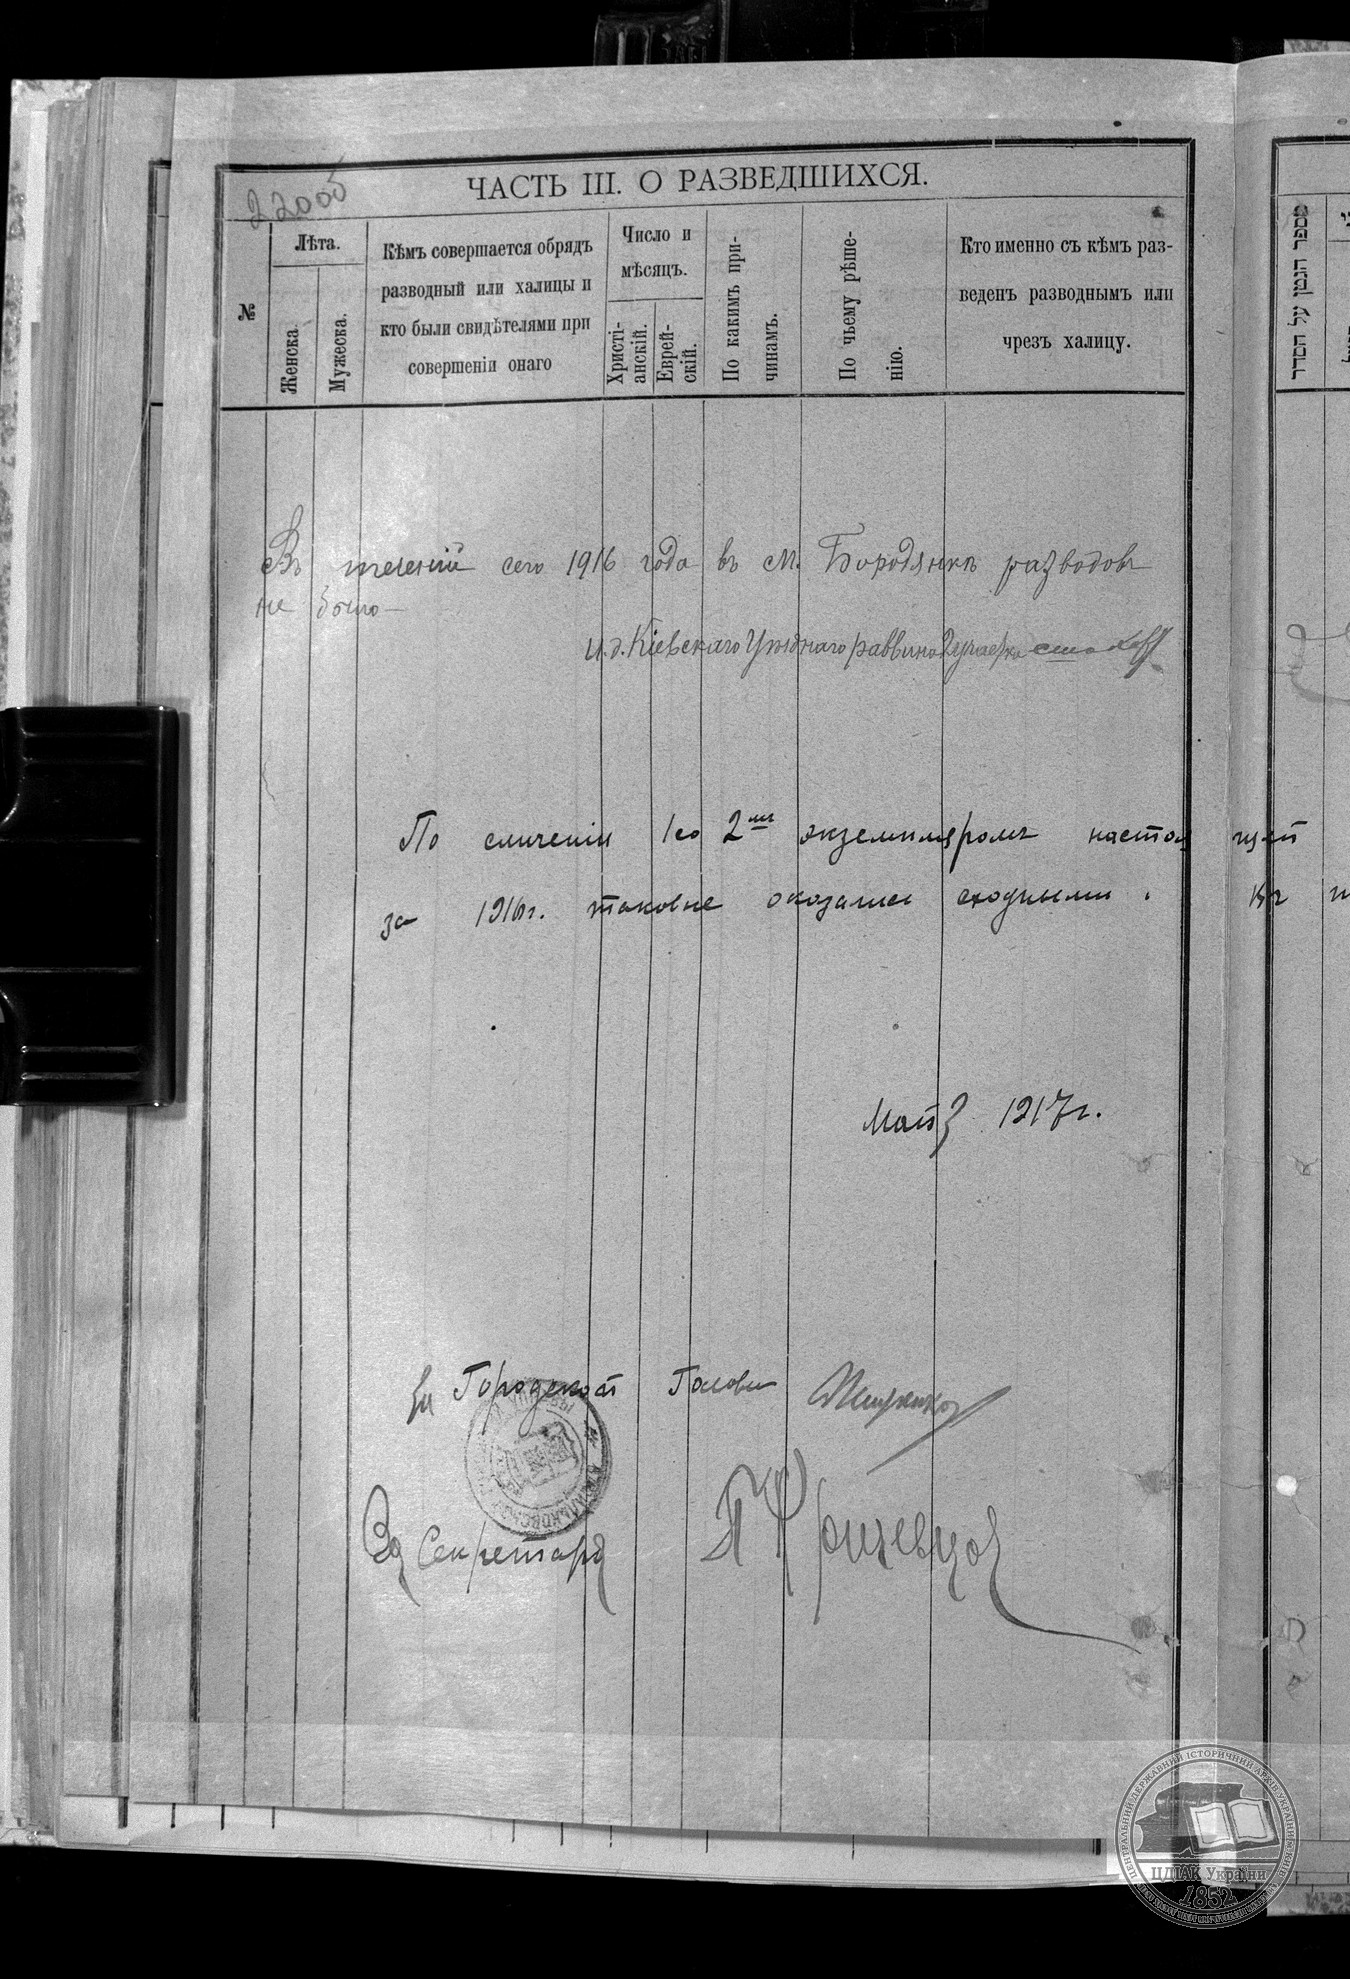 22005
ЧАСТЬ III. О РАЗВЕДШИХСЯ.
№
Лѣта.
Женска.
Мужеска.
Кѣмъ совершается обрядъ
разводный или халицы и
кто были свидѣтелями при
совершеніи онаго
Число и
мѣсяцъ.
Христі-
анскій.
Еврей-
скій.
По какимъ при-
чинамъ.
По чьему рѣше-
нію.
Кто именно съ кѣмъ раз-
веденъ разводнымъ или
чрезъ халицу.
מספר הנמן על הסדר
Въ теченіи сего 1916 года въ м. Бородянкѣ разводовъ
не было —
И. д. Кіевскаго Уѣзднаго раввина
По сличеніи со 2мъ экземпляромъ настоящей
за 1916г. таковые оказались сходными.
Май 1917г.
За Городской Голова
За Секретаря
ЦЕНТРАЛЬНИЙ ДЕРЖАВНИЙ ІСТОРИЧНИЙ АРХІВ УКРАЇНИ
ЦДІАК України
1852